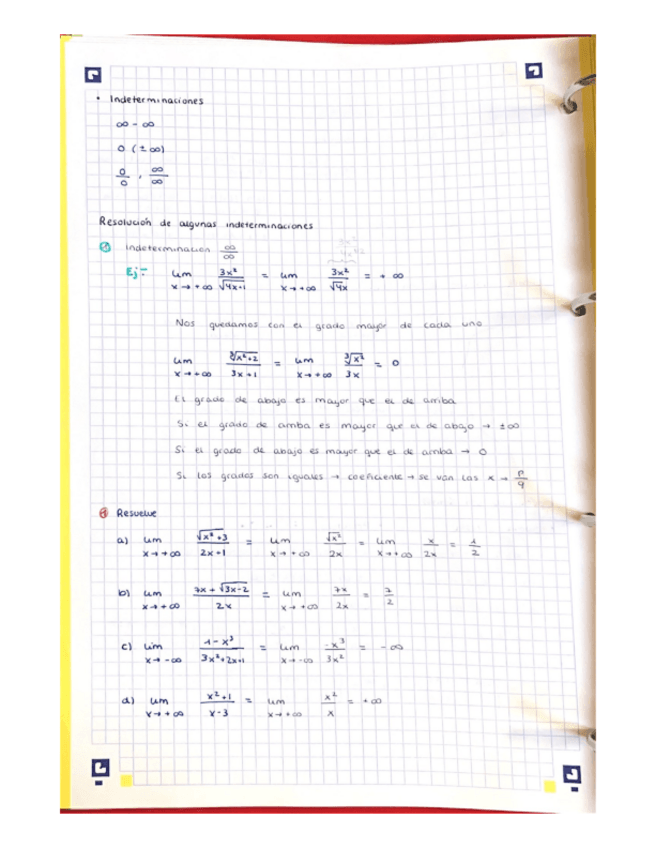 • Indeterminaciones
∞ - ∞
0 (± ∞)
0/0 , ∞/∞
Resolución de algunas indeterminaciones
Indeterminación ∞/∞
Ej:- lim x→+∞ 3x²/√4x+1 = lim x→+∞ 3x²/√4x = +∞
Nos quedamos con el grado mayor de cada uno
lim x→+∞ ∛x²+2/3x+1 = lim x→+∞ ∛x²/3x = 0
El grado de abajo es mayor que el de arriba
Si el grado de arriba es mayor que el de abajo → ±∞
Si el grado de abajo es mayor que el de arriba → 0
Si los grados son iguales → coeficiente → se van las x → p/q
Resuelve
a) lim x→+∞ √x²+3/2x+1 = lim x→+∞ √x²/2x = lim x→+∞ x/2x = 1/2
b) lim x→+∞ 7x+√3x-2/2x = lim x→+∞ 7x/2x = 7/2
c) lim x→-∞ 1-x³/3x²+2x+1 = lim x→-∞ -x³/3x² = -∞
d) lim x→+∞ x²+1/x-3 = lim x→+∞ x²/x = +∞